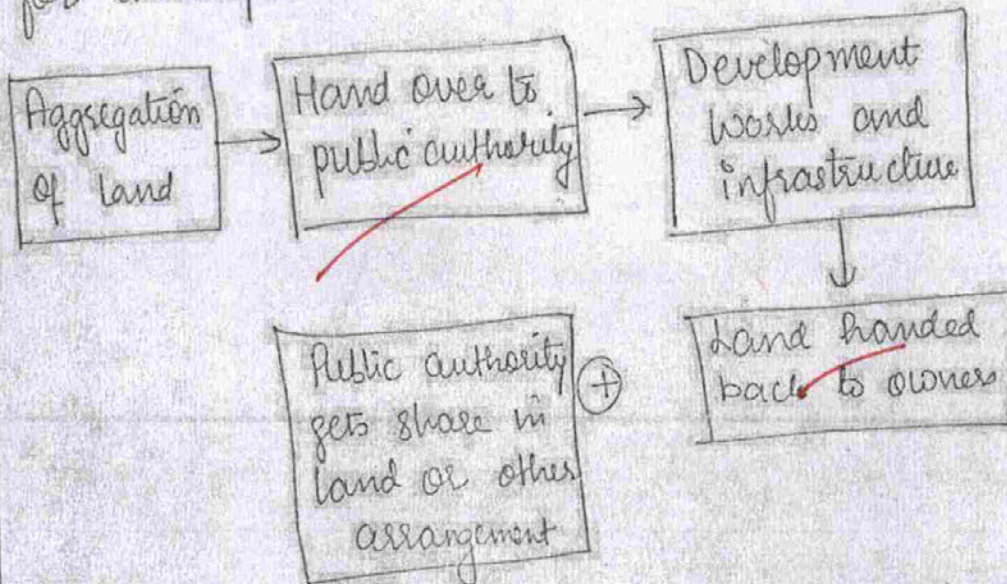 for
Aggregation
of land
Hand over to
public authority
Development
works and
infrastructure
Land handed
back to owners
+
Public authority
gets share in
land or other
arrangement